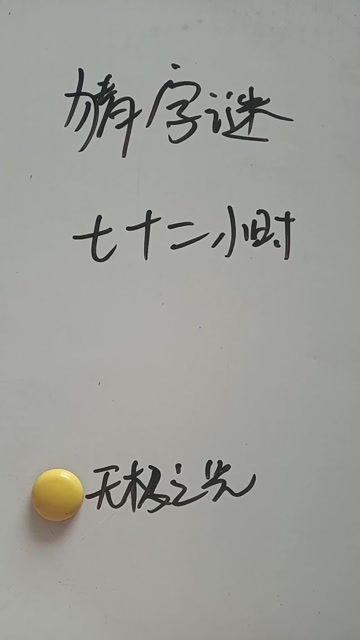 猜字谜
七十二小时
无极之光